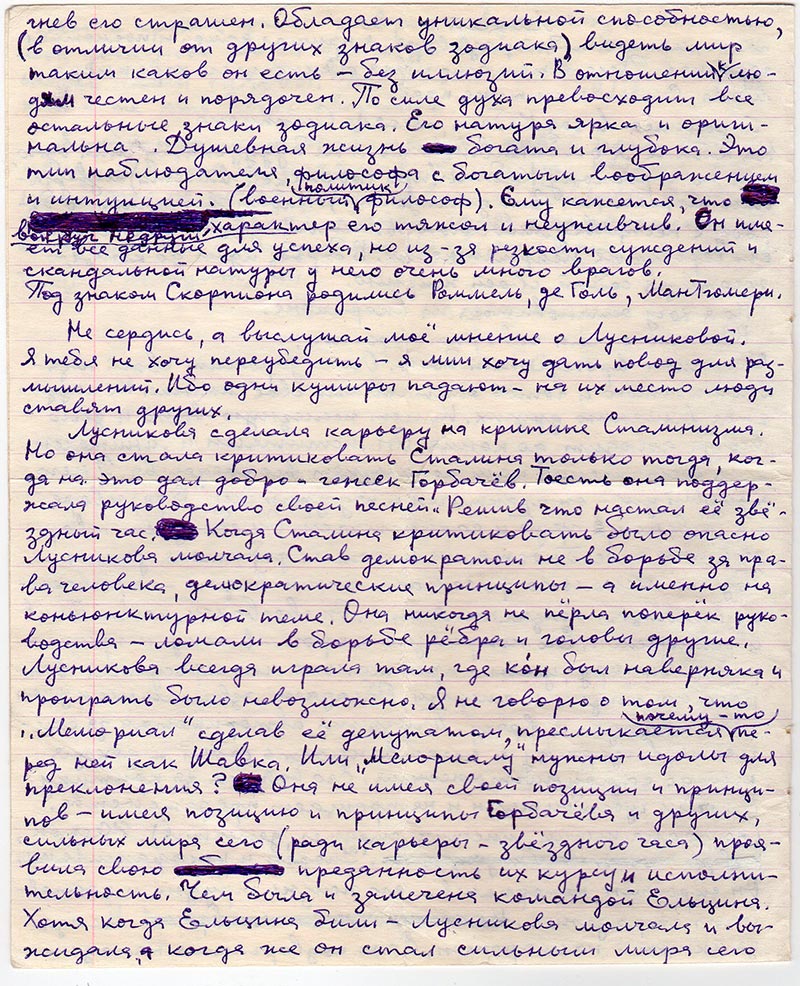 гнев его страшен. Обладает уникальной способностью,
(в отличии от других знаков зодиака) видеть мир
таким каков он есть – без иллюзий. В отношений к лю-
дям честен и порядочен. По силе духа превосходит все
остальные знаки зодиака. Его натура ярка и ориги-
нальна. Душевная жизнь богата и глубока. Это
тип наблюдателя, философа с богатым воображением
и интуицией. (военный, политик философ). Ему кажется, что
вокруг недруги, характер его тяжол и неуживчив. Он име-
ет все данные для успеха, но из-за резкости суждений и
скандальной натуры у него очень много врагов.
Под знаком Скорпиона родились Роммель, де Голь, Мантгомери.
Не сердись, а выслушай моё мнение о Лусниковой.
Я тебя не хочу переубедить – я лиш хочу дать повод для раз-
мышлений. Ибо одни кумиры падают – на их место люди
ставят других.
Лусникова сделала карьеру на критике Сталинизма.
Но она стала критиковать Сталина только тогда, ког-
да на это дал добро – генсек Горбачёв. Тоесть она поддер-
жала руководство своей песней. Решив что настал её звё-
здный час. Когда Сталина критиковать было опасно
Лусникова молчала. Став демократом не в борьбе за пра-
ва человека, демократические принципы – а именно на
коньюнктурной теме. Она никогда не пёрла поперёк руко-
водства – ломали в борьбе рёбра и головы другие.
Лусникова всегда играла там, где кон был наверняка и
проиграть было невозможно. Я не говорю о том, что
„Мемориал" сделав её депутатом, пресмыкается почему-то пе-
ред ней как Шавка. Или „Мемориалу" нужны идолы для
преклонения? Она не имея своей позиции и принци-
пов – имея позицию и принципы Горбачёва и других,
сильных мира сего (ради карьеры – звёздного часа) проя-
вила свою преданность их курсу и исполни-
тельность. Чем была и замечена командой Ельцина.
Хотя когда Ельцина били – Лусникова молчала и вы-
жидала, а когда же он стал сильным мира сего